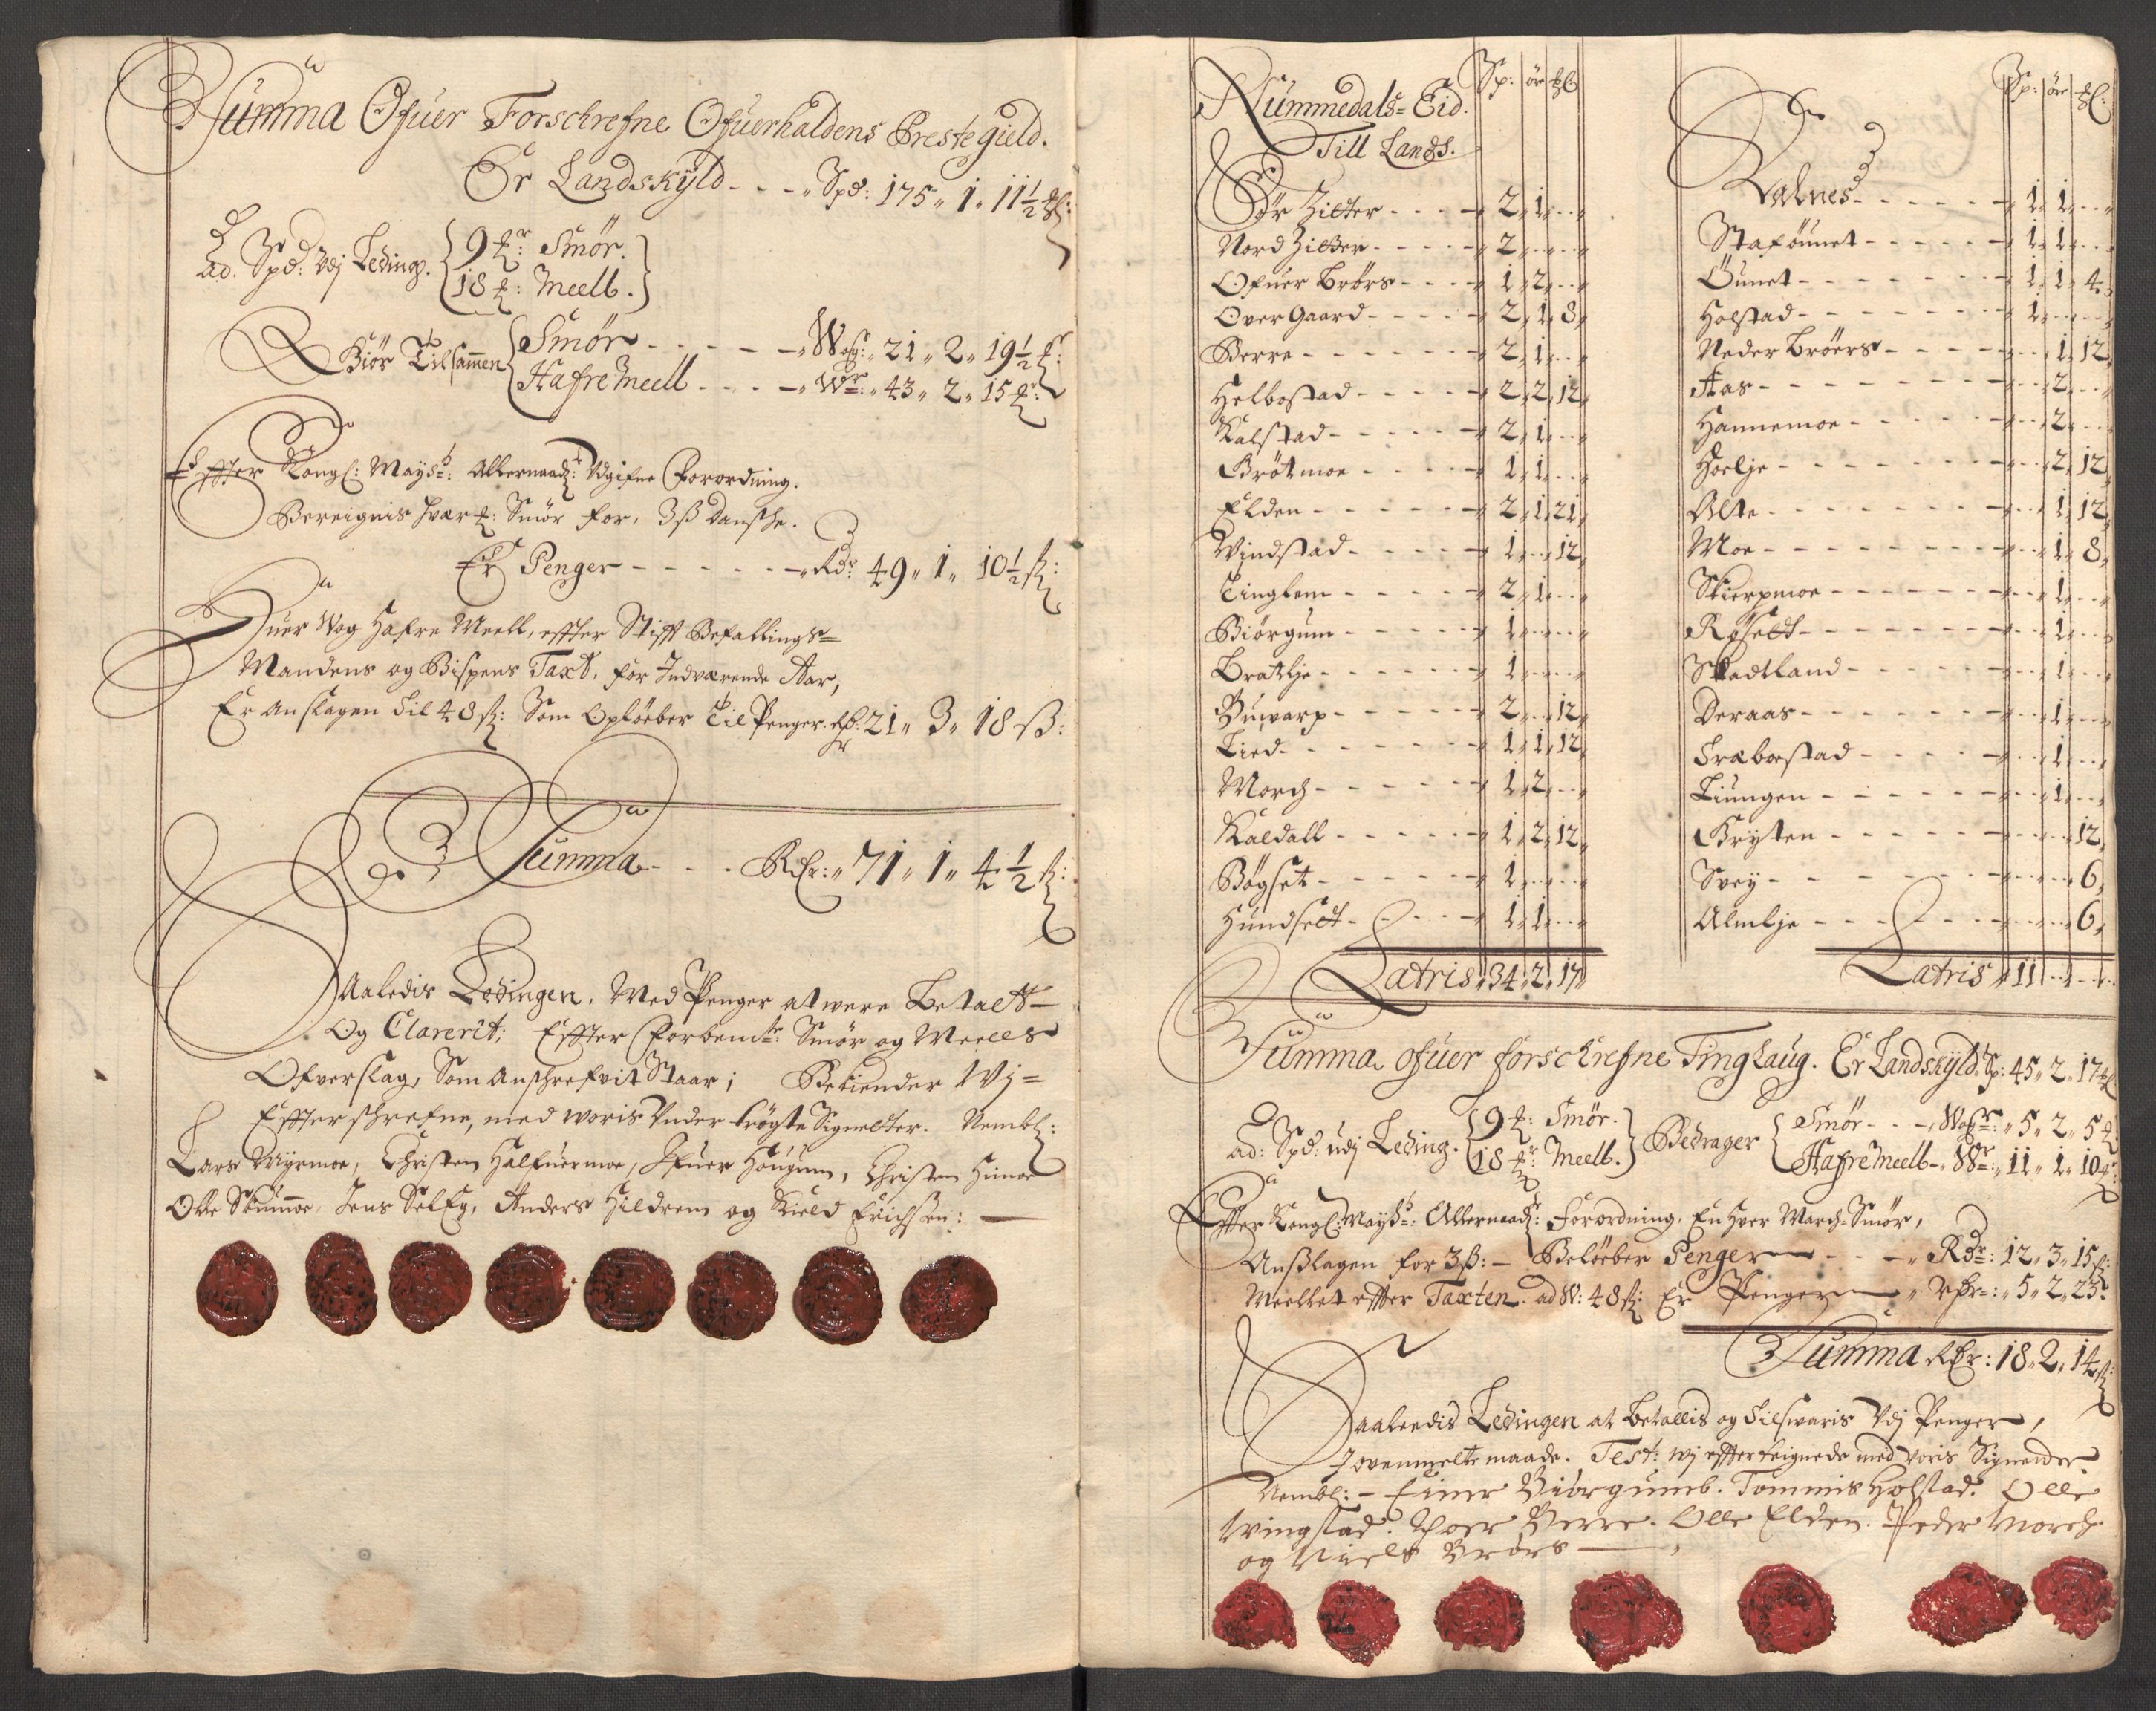 Summa Ofuer Forschrefne Ofuerhaldens Prestegield.
Er Landskÿld - - - „ Spd: 175 „ 1 „ 11½ ℔:
Ad. Spd: Vdj Leding. 9 ℔r: Smör.
18 ℔: Meell.
Giör Tilsamen Smör - - - - - „ Wog: „ 21 „ 2 „ 19½ ℔r:
Hafre Meell - - - - „ Wr: „ 43 „ 2 „ 15 ℔r:
Effter Kongl: Mayst: Allernaadt: Vdgifne Forordning.
Bereignis hwer ℔: Smör for, 3ß Danshe.
Er Penger - - - - - - - „ Rdr: 49 „ 1 „ 10½ ß:
Huer Wog Hafre Meell, effter Stifft Befallings-
Mandens og Bispens Taxt, for Indværende Aar,
Er Anslagen til 48 ß: Som Opløber Til Penger Rdr: 21 „ 3 „ 18 ß:
Summa - - - Rdr: „ 71 „ 1 „ 4½ ß:
Saaledis Ledingen, Med Penger at were Betalt
Og Clarerit; Effter Forbemte: Smör og Meells
Ofverslag, Som Anschrefvit Staar; Bekiender Wj-
Effterschrefne, med woris Vnder trögte Signetter. Nembl:
Lars Myrmoe, Christen Halfuermoe, Ifuer Hougum, Christen Himoe
Olle Skimoe, Jens Selleg, Anders Hildrem og Kield Erichsen: —
Nümmedals-Eid.
Till Lands.
Sp: | ör | ℔
Sör Zilter - - - - 2 „ 1 „ ..
Nord Zilter - - - - 2 „ .. „ ..
Ofuer Brörs - - - - 1 „ 2 „ ..
Over Gaard - - - - 2 „ 1 „ 8
Berre - - - - - - 2 „ 1 „ ..
Helbostad - - - - 2 „ 2 „ 12
Kalstad - - - - - 2 „ 1 „ ..
Brötmoe - - - - 1 „ 1 „ ..
Elden - - - - - 2 „ 1 „ 21
Windstad - - - - 1 „ .. „ 12
Tinglem - - - - - 2 „ 1 „ ..
Biörgum - - - - - 1 „ .. „ ..
Bratlje - - - - - 1 „ .. „ ..
Buwarp - - - - - 2 „ .. „ 12
Lied - - - - - - 1 „ 1 „ 12
Morch - - - - - - 1 „ 2 „ ..
Kaldall - - - - - 1 „ 2 „ 12
Bögset - - - - - 1 „ .. „ ..
Hundsett - - - - 1 „ 1 „ ..
Latris „ 34 „ 2 „ 17
Sp: | ör | ℔:
Valnes - - - - - 1 „ 1 „ ..
Stafönnet - - - - - 1 „ 1 „ ..
Öunet - - - - - - 1 „ 1 „ 4
Holstad - - - - - - 1 „ .. „ ..
Neder Bröers - - - - .. „ 1 „ 12
Aas - - - - - - - .. „ 2 „ ..
Hannemoe - - - - - .. „ 2 „ ..
Hoelje - - - - - - .. „ 2 „ 12
Alte - - - - - - - .. „ 1 „ 12
Moe - - - - - - - .. „ 1 „ 8
Skierpmoe - - - - - .. „ 1 „ ..
Rösett - - - - - - .. „ 1 „ ..
Skadtland - - - - - .. „ 1 „ ..
Deraas - - - - - - .. „ 1 „ ..
Træbostad - - - - .. „ 1 „ ..
Liungen - - - - - .. „ 1 „ ..
Bryten - - - - - .. „ .. „ 12
Svey - - - - - - .. „ .. „ 6
Almlje - - - - - - .. „ .. „ 6
Latris „ 11 „ .. „ ..
Summa ofuer forschrefne Tinglaug. Er Landskÿld. Sp: 45 „ 2 „ 17 ℔
ad: Spd: udj Leding. 9 ℔: Smör. Bedrager Smör - - - „ Wogr: „ 5 „ 2 „ 5 ℔
18 ℔r: Meell. Hafre Meell - „ Wr: „ 11 „ 1 „ 10 ℔r:
Effter Kongl: Mayst: Allernaadt: Forordning, En hver March Smör,
Anslagen for 3ß: — Beløber Penger - - - „ Rdr: 12 „ 3 „ 15 ß:
Meellet effter Taxten ad W: 48 ß: Er Penger „ Rdr: „ 5 „ 2 „ 23
Summa Rdr: 18 „ 2 „ 14 ß:
Saaleedis Ledingen at Betallis og Tilswaris Vdj Penger,
I ovenmelte maade. Test: wj effterteignede med voris Signeder
Nembl: - Einer Biörgumb. Tommis Holstad. Olle
Wingstad. Berre. Olle Elden. Peder Morch
og Niels Brörs —